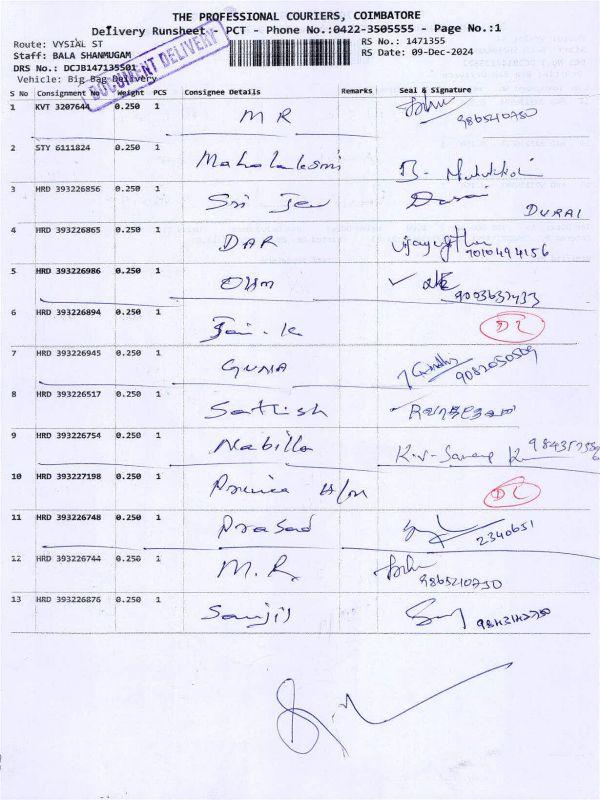 THE PROFESSIONAL COURIERS, COIMBATORE
Delivery Runsheet - PCT - Phone No.:0422-3505555 - Page No.:1
Route: VYSIAL ST RS No.: 1471355
Staff: BALA SHANMUGAM RS Date: 09-Dec-2024
DRS No.: DCJB147135501
Vehicle: Big Bag Delivery
DOCUMENT DELIVERY
S No Consignment No Weight PCS Consignee Details Remarks Seal & Signature
1 KVT 3207644 0.250 1 M R 9865210750
2 STY 6111824 0.250 1 Mahalakshmi
3 HRD 393226856 0.250 1 Sri Durai
DURAI
4 HRD 393226865 0.250 1 DAR 9010494156
5 HRD 393226986 0.250 1 OHM 9003637433
6 HRD 393226894 0.250 1 DL
7 HRD 393226945 0.250 1 GUNA 9082050509
8 HRD 393226517 0.250 1 Sathish
9 HRD 393226754 0.250 1 Nabilla
10 HRD 393227198 0.250 1 DL
11 HRD 393226748 0.250 1 Prasad 2340651
12 HRD 393226744 0.250 1 M.R. 9865210750
13 HRD 393226876 0.250 1 Sanjil